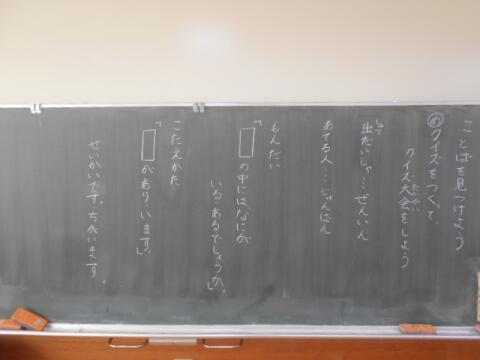 ことばを見つけよう
めクイズをつくって
クイズ大会をしよう
たいかい
出だいしゃ…ぜんいん
しゅつ
あてる人…じゅんばん
もんだい
「▯の中には、なにが
いる・あるでしょうか。」
こたえかた
「▯があり(い)ます。」
せいかいです。ちがいます。